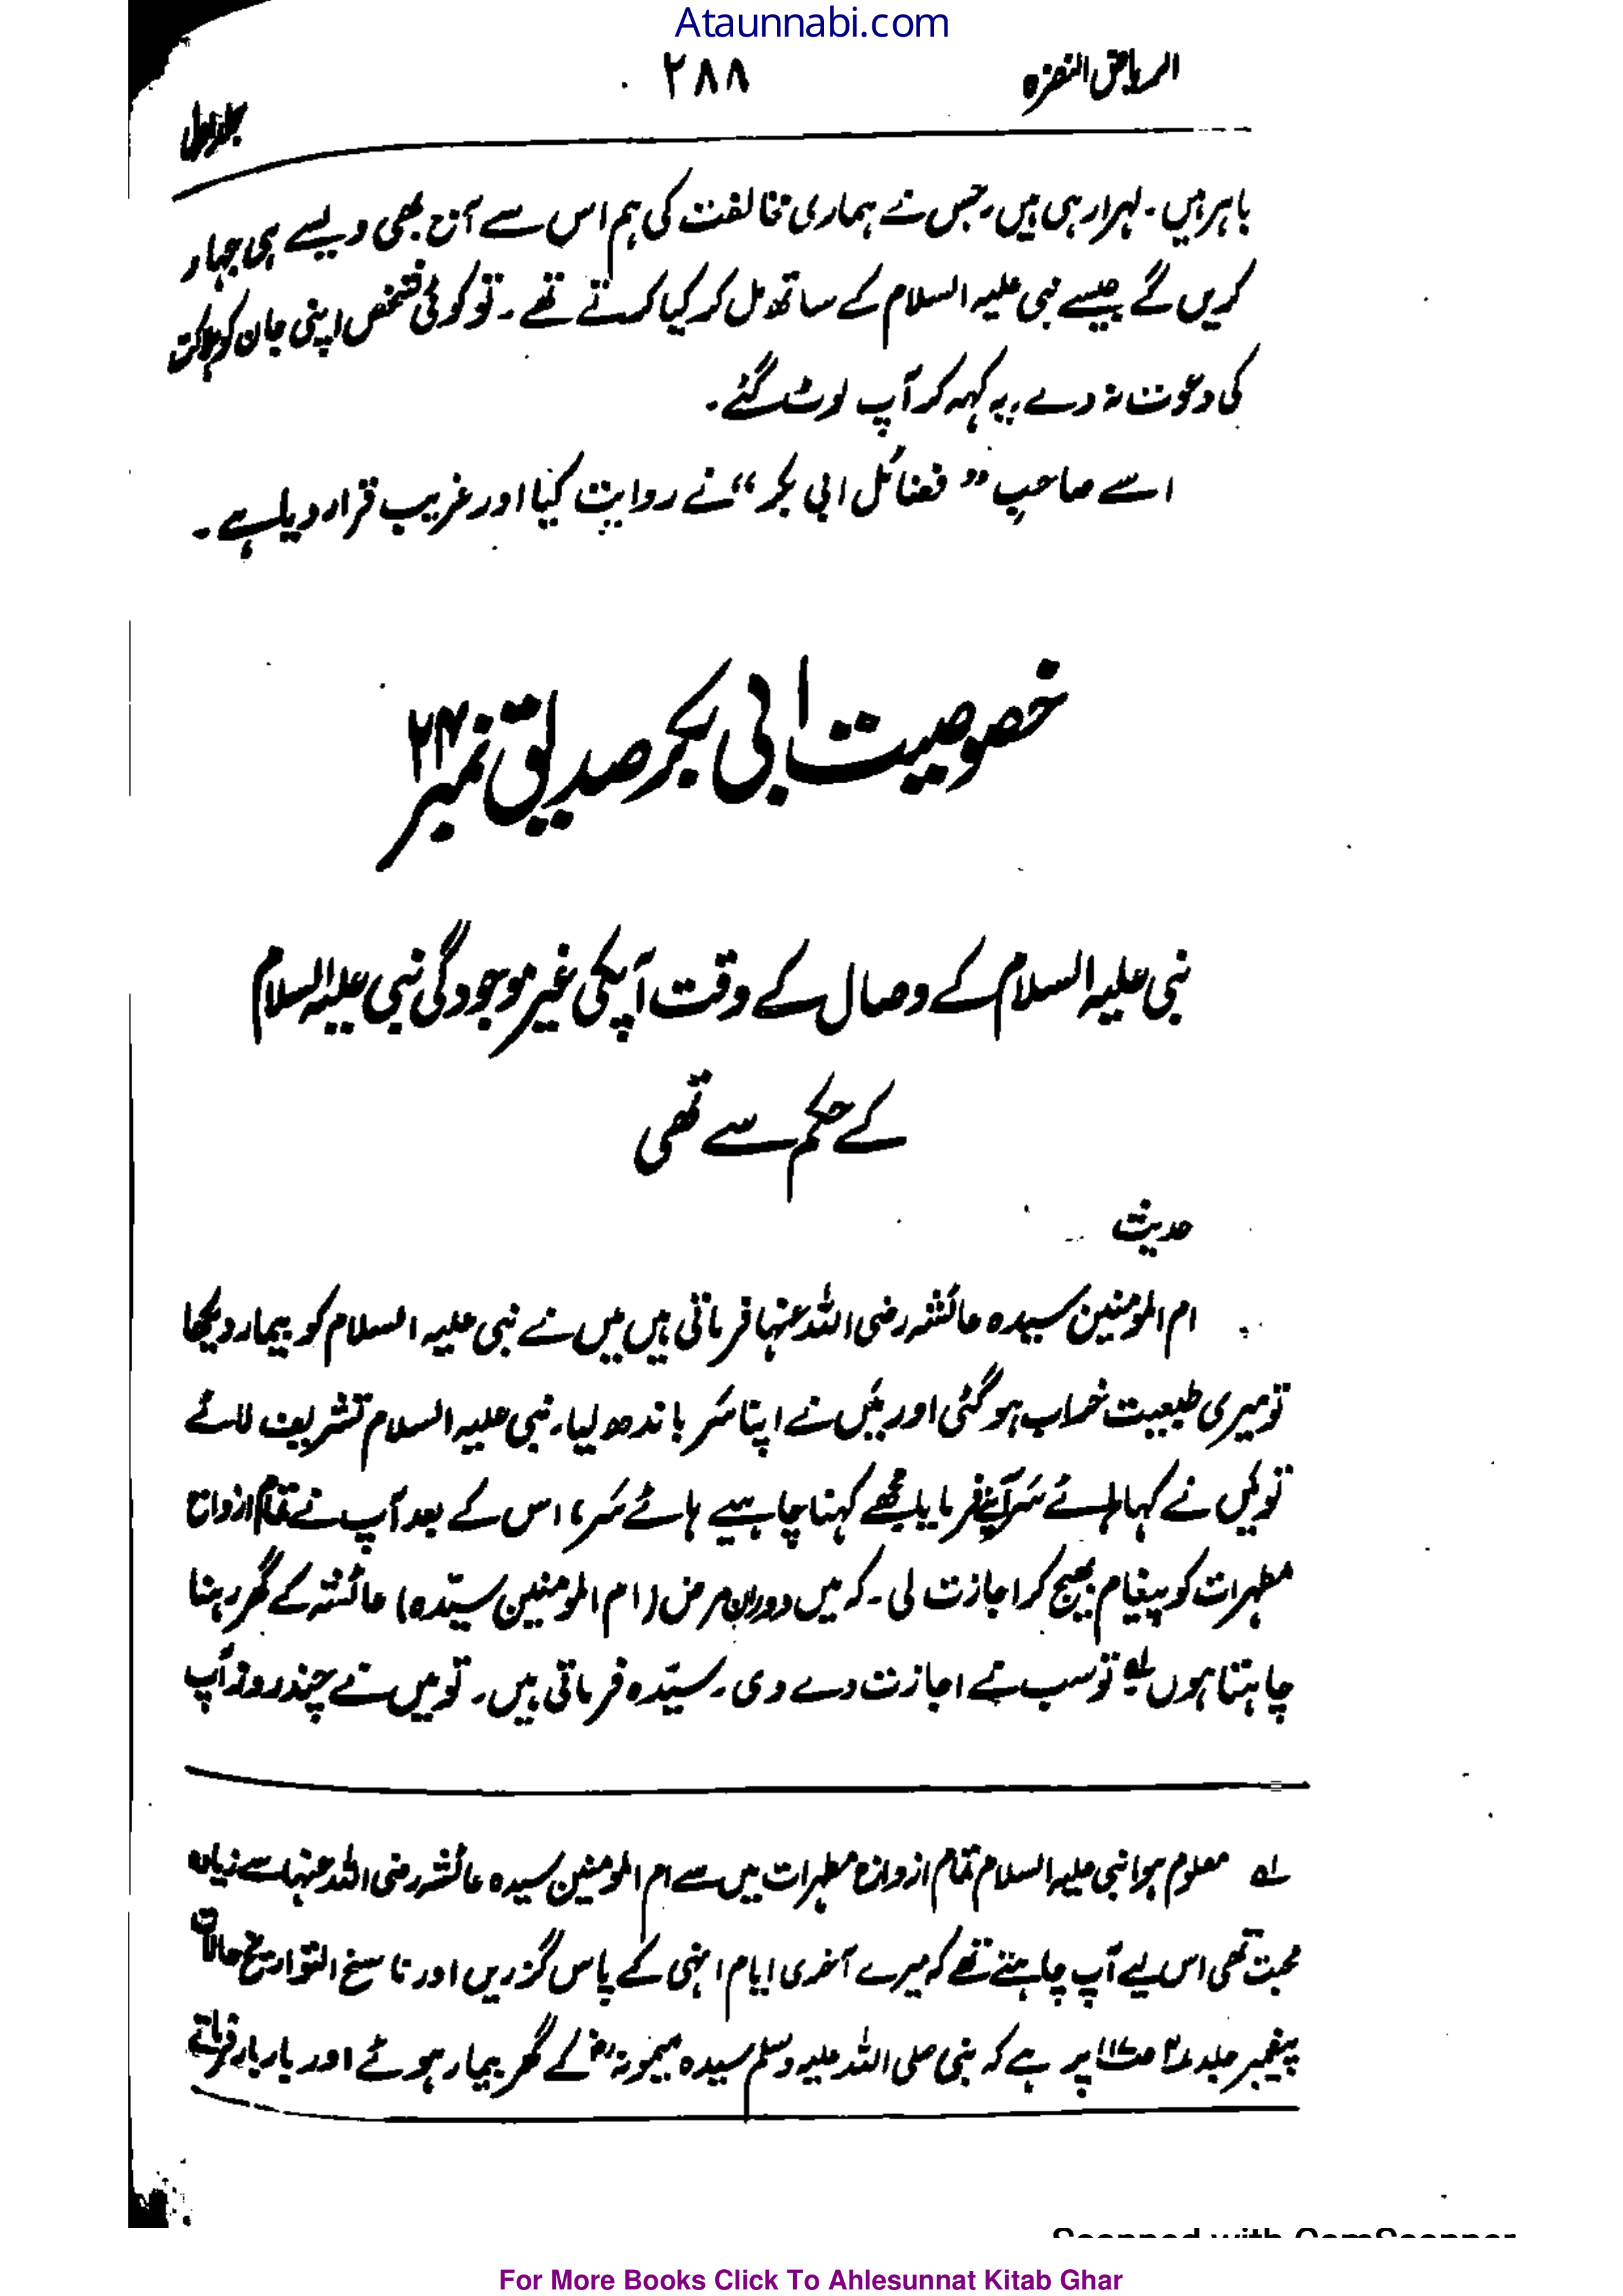 Ataunnabi.com
الریاض النضرہ
۲۸۸
جلد اول
باہر ہیں۔ لہرا رہی ہیں، جس نے ہماری مخالفت کی ہم اس سے آج بھی ویسے ہی جہاد
کریں گے جیسے نبی علیہ السلام کے ساتھ مل کر کیا کرتے تھے۔ تو کوئی شخص اپنی جان کو ہلاکت
کی دعوت نہ دے، یہ کہہ کر آپ لوٹ گئے۔
اسے صاحبِ ”فضائل ابی بکر“ نے روایت کیا اور غریب قرار دیا ہے۔
خصوصیت ابی بکر صدیق نمبر ۲۴
نبی علیہ السلام کے وصال کے وقت آپکی غیر موجودگی نبی علیہ السلام
کے حکم سے تھی
حدیث
ام المومنین سیدہ عائشہ رضی اللہ عنہا فرماتی ہیں میں نے نبی علیہ السلام کو بیمار دیکھا
تو میری طبیعت خراب ہو گئی اور میں نے اپنا سَر باندھ لیا۔ نبی علیہ السلام تشریف لائے
تو میں نے کہا ہائے سَر آپنے فرمایا مجھے کہنا چاہیے ہائے سَر، اس کے بعد آپ نے تمام ازواج
مطہرات کو پیغام بھیج کر اجازت لی۔ کہ میں دوران مرض (ام المومنین سیّدہ) عائشہ کے گھر رہنا
چاہتا ہوں لہ تو سب نے اجازت دے دی۔ سیّدہ فرماتی ہیں۔ تو میں نے چند روز آپ
لہ معلوم ہوا نبی علیہ السلام تمام ازواج مطہرات میں سے ام المومنین سیدہ عائشہ رضی اللہ عنہا سے زیادہ
محبت تھی اس لیے آپ چاہتے تھے کہ میرے آخری ایام انہی کے پاس گزریں اور ناسخ التواریخ حالات
پیغمبر جلد پر ہے کہ نبی صلی اللہ علیہ وسلم سیدہ میمونہ رض کے گھر بیمار ہوئے اور بار بار فرماتے
For More Books Click To Ahlesunnat Kitab Ghar